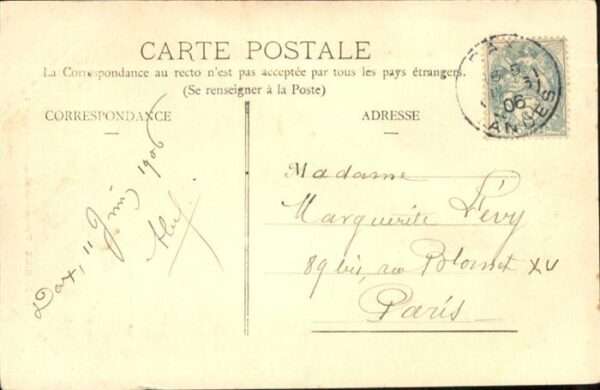 CARTE POSTALE
La Correspondance au recto n'est pas acceptée par tous les pays étrangers.
(Se renseigner à la Poste)
CORRESPONDANCE
ADRESSE
Dax, 11 Juin 1906
Madame
Marguerite Lévy
89 bis, rue Blomet XV
Paris
DAX
06
LANDES